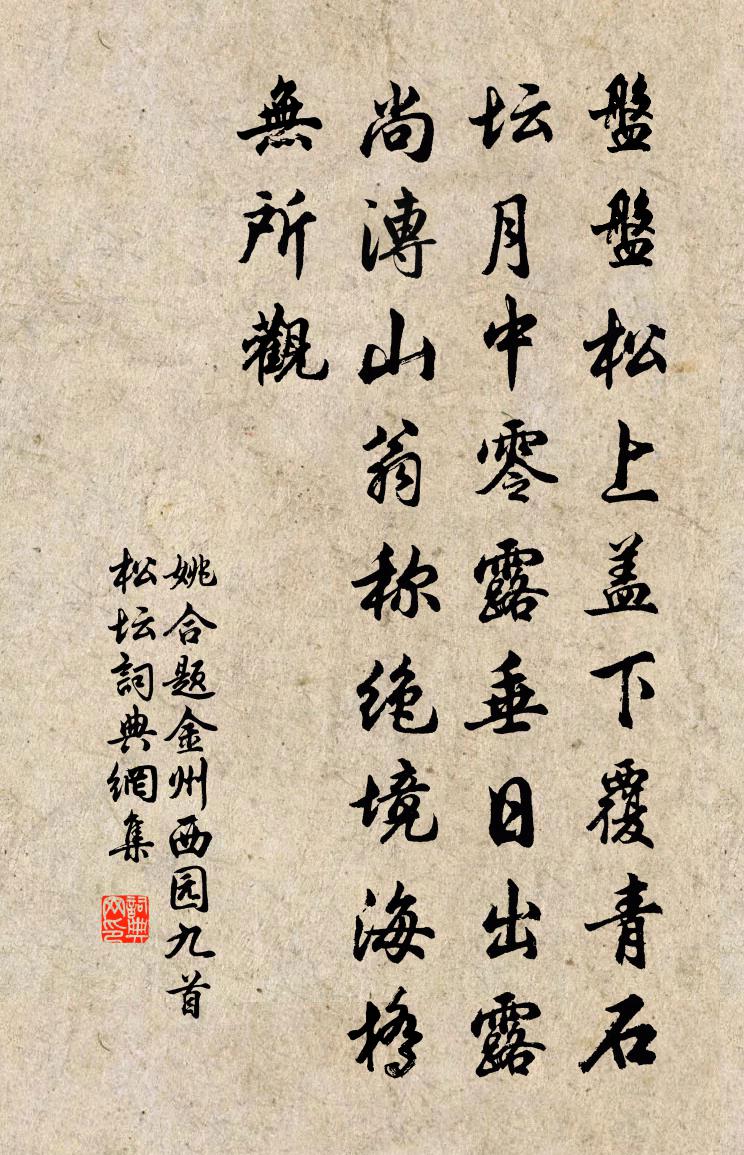 盤盤松上盖下覆青石
坛月中零露垂日出露
尚溥山翁称绝境海橋
無所觀
姚合题金州西园九首
松坛詞典網集
詞典
网印